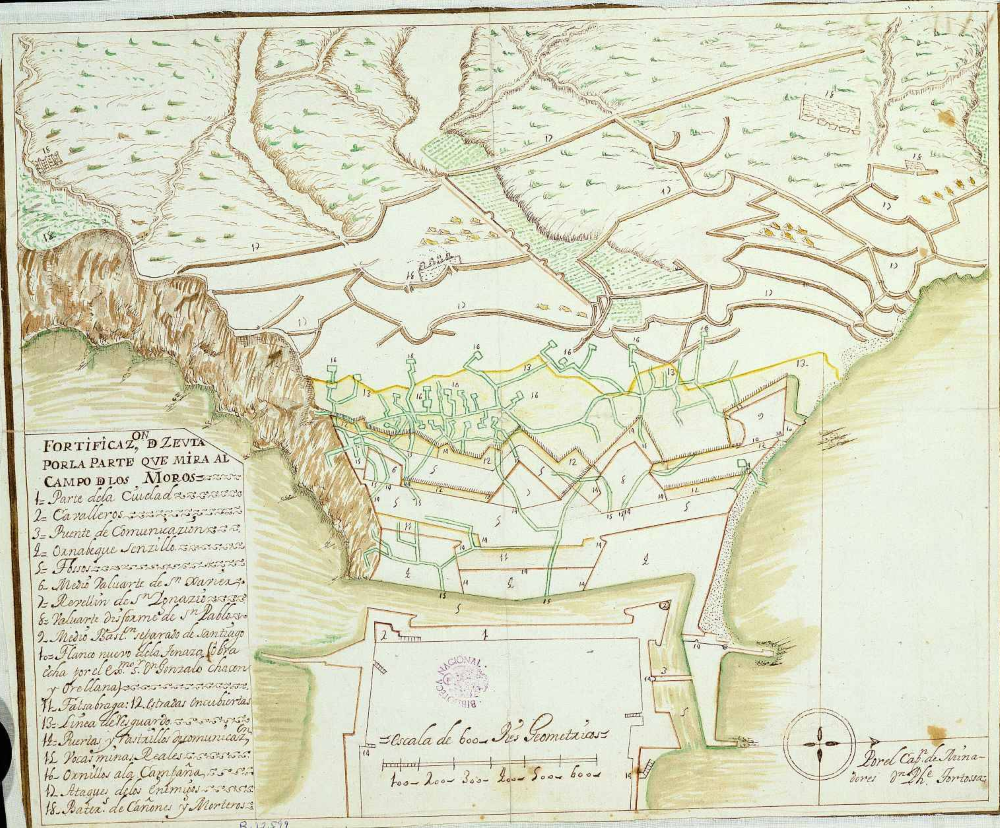 FORTIFICAZ,ON D ZEVTA
POR LA PARTE QVE MIRA AL
CAMPO D LOS MOROS
1= Parte dela Ciudad
2= Cavalleros
3= Puente de Comunicazion
4= Ornabeque Senzillo
5= Fossos
6= Medio Valuarte de Sn Xavier
7= Revellin de Sn Ignazio
8= Valuarte disforme de Sn Pablo
9= Medio Bastn separado de Santiago
10= Flanco nuevo dela Tenaza (obra
echa por el Exmo Sr Dn Gonzalo Chacon
y Orellana)
11= Falsabraga: 12 Estradas encubiertas
13= Linea de resguardo
14= Puertas y Pastxillos de comunicazon
15= Vocas minas Reales
16= Ornillos ala Campaña
17= Ataques delos Enemigos
18= Baterxs de Cañones y Morteros
BIBLIOTECA NACIONAL
Escala de 600 Pies Geometricos
100 200 300 400 500 600
Por el Capn de Mina-
dores Dn Phe Tortossa